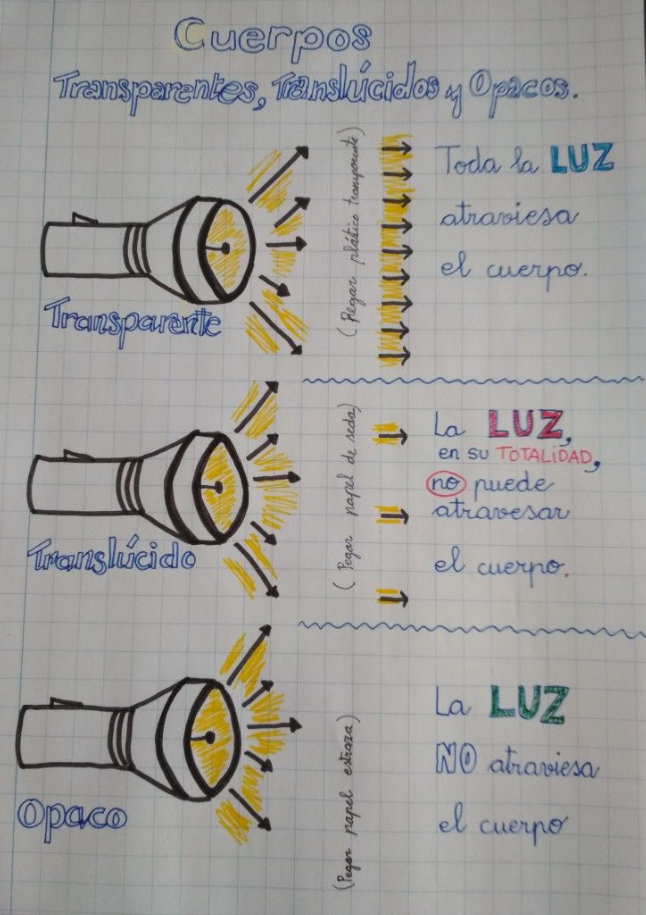 Cuerpos
Transparentes, Translúcidos y Opacos.
Transparente
(Pegar plástico transparente)
Toda la LUZ
atraviesa
el cuerpo.
Translúcido
(Pegar papel de seda)
La LUZ,
en su TOTALIDAD,
no puede
atravesar
el cuerpo.
Opaco
(Pegar papel estraza)
La LUZ
NO atraviesa
el cuerpo